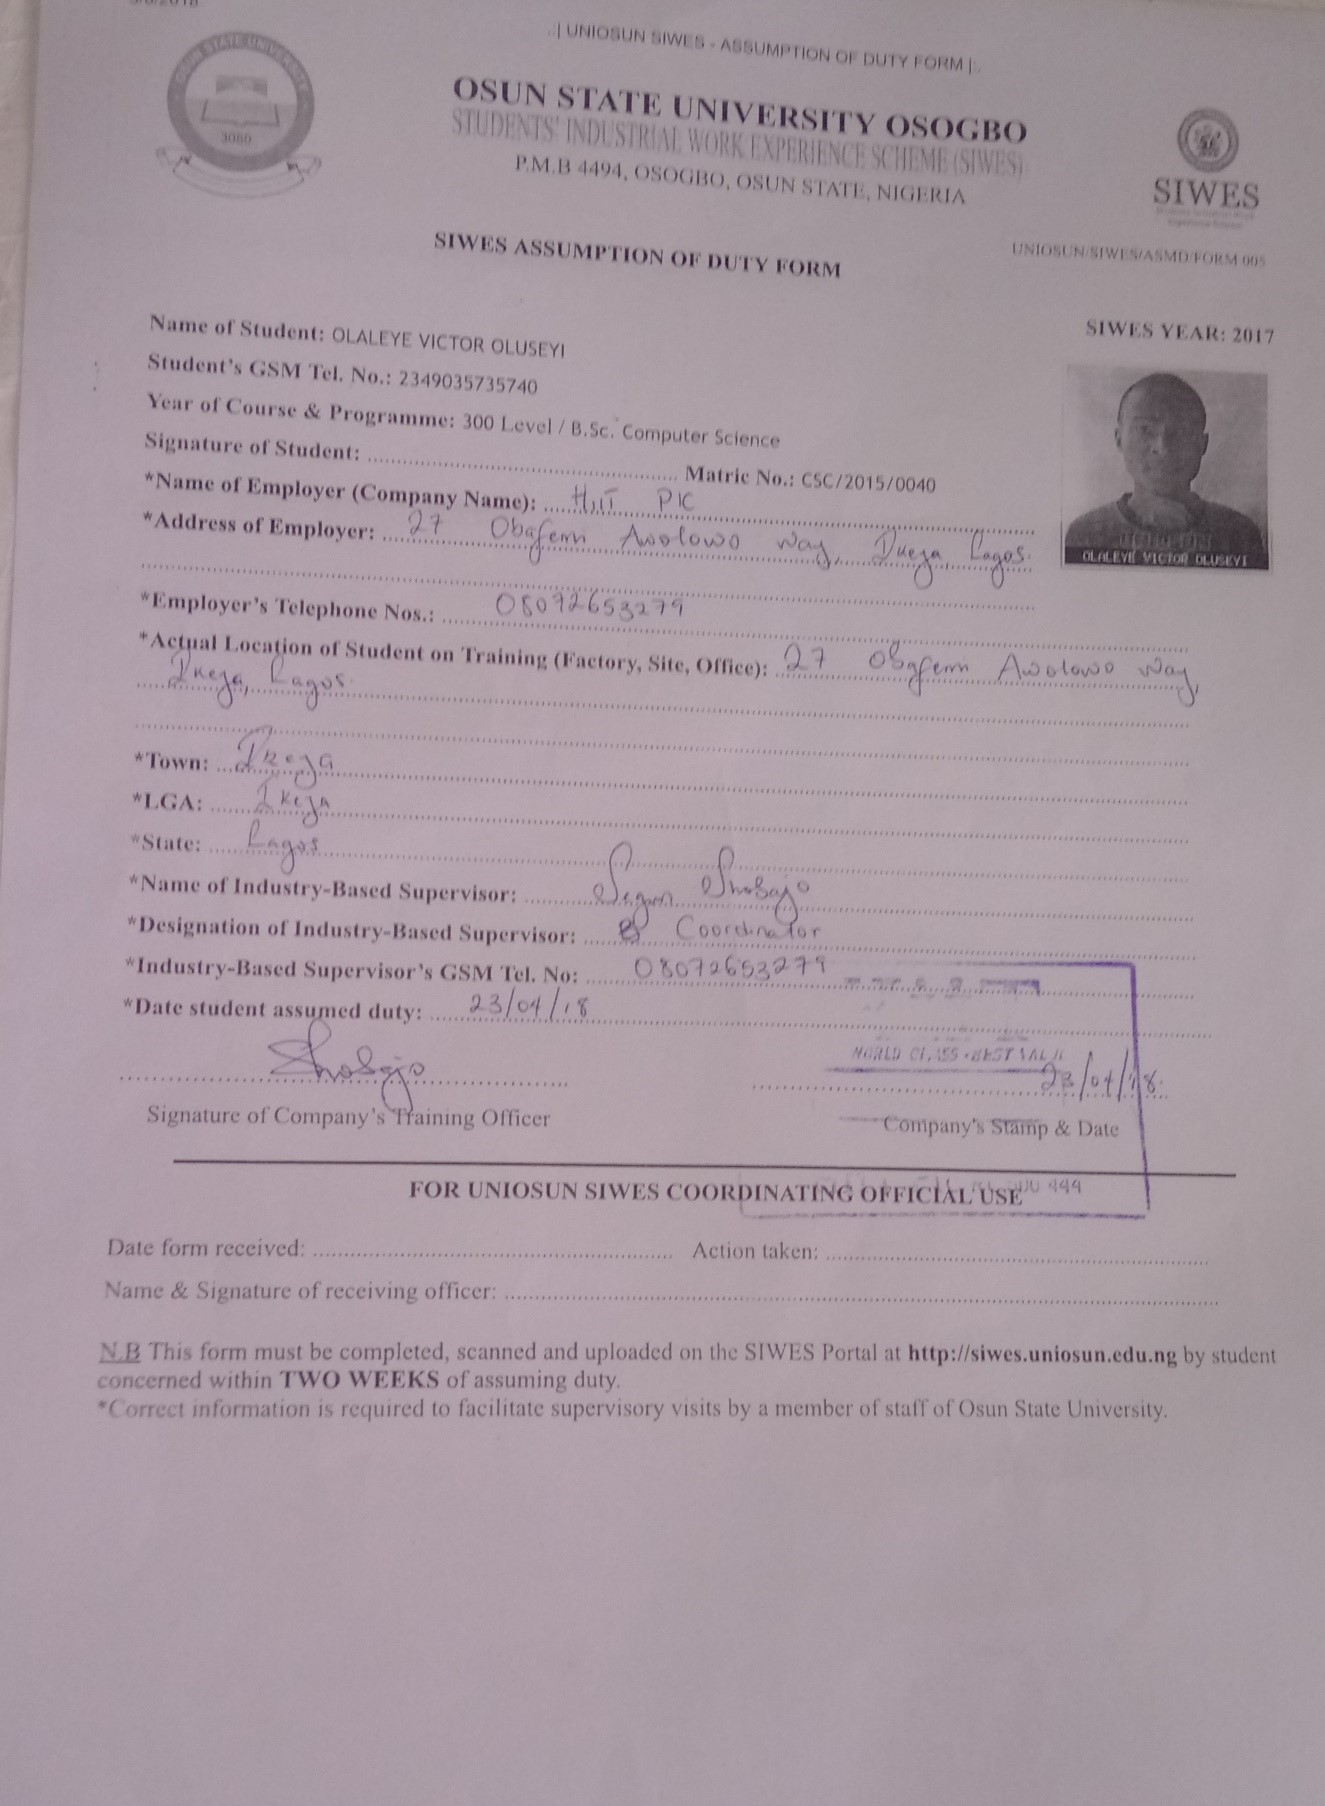 .:| UNIOSUN SIWES - ASSUMPTION OF DUTY FORM |:.
OSUN STATE UNIVERSITY OSOGBO
STUDENTS' INDUSTRIAL WORK EXPERIENCE SCHEME (SIWES)
P.M.B 4494, OSOGBO, OSUN STATE, NIGERIA
OSUN STATE UNIVERSITY
SIWES
SIWES ASSUMPTION OF DUTY FORM
UNIOSUN/SIWES/ASMD/FORM 005
SIWES YEAR: 2017
Name of Student: OLALEYE VICTOR OLUSEYI
Student's GSM Tel. No.: 2349035735740
Year of Course & Programme: 300 Level / B.Sc. Computer Science
Signature of Student: ........ Matric No.: CSC/2015/0040
OLALEYE VICTOR OLUSEYI
*Name of Employer (Company Name): PIC
*Address of Employer: 27 Obafemi Awolowo way, Ikeja Lagos.
*Employer's Telephone Nos.: 08072653279
*Actual Location of Student on Training (Factory, Site, Office): 27 Obafemi Awolowo way,
Ikeja, Lagos.
*Town: Ikeja
*LGA: Ikeja
*State: Lagos
*Name of Industry-Based Supervisor: Segun Shobajo
*Designation of Industry-Based Supervisor: Coordinator
*Industry-Based Supervisor's GSM Tel. No: 08072653279
*Date student assumed duty: 23/04/18
Shobajo
WORLD CLASS
23/04/18
Signature of Company's Training Officer
Company's Stamp & Date
FOR UNIOSUN SIWES COORDINATING OFFICIAL USE
444
Date form received: ........ Action taken: ........
Name & Signature of receiving officer: ........
N.B This form must be completed, scanned and uploaded on the SIWES Portal at http://siwes.uniosun.edu.ng by student
concerned within TWO WEEKS of assuming duty.
*Correct information is required to facilitate supervisory visits by a member of staff of Osun State University.